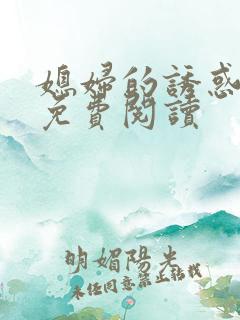 媳婦的誘惑
免費閱讀
明媚陽光
未經同意禁止轉載